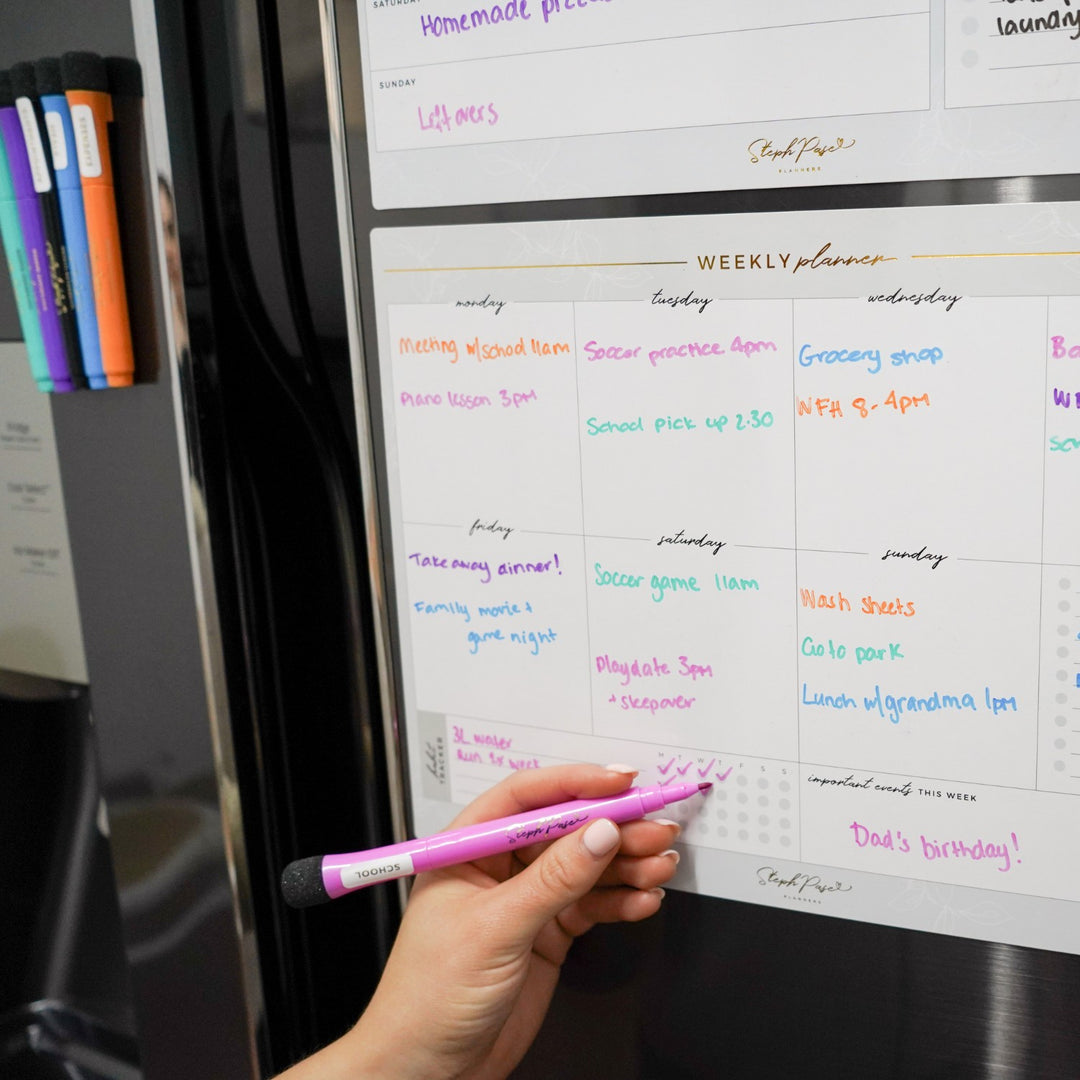 SATURDAY
Homemade
SUNDAY
Leftovers
laundry
Steph Pase
PLANNERS
WEEKLY planner
monday
Meeting w/school 11am
Piano lesson 3pm
tuesday
Soccer practice 4pm
School pick up 2.30
wednesday
Grocery shop
WFH 8-4pm
friday
Takeaway dinner!
Family movie +
game night
saturday
Soccer game 11am
Playdate 3pm
+ sleepover
sunday
Wash sheets
Go to park
Lunch w/grandma 1pm
habit
TRACKER
3L water
Run 3x week
M T W T F S S
important events THIS WEEK
Dad's birthday!
Steph Pase
PLANNERS
Steph Pase
SCHOOL
EXPENSES